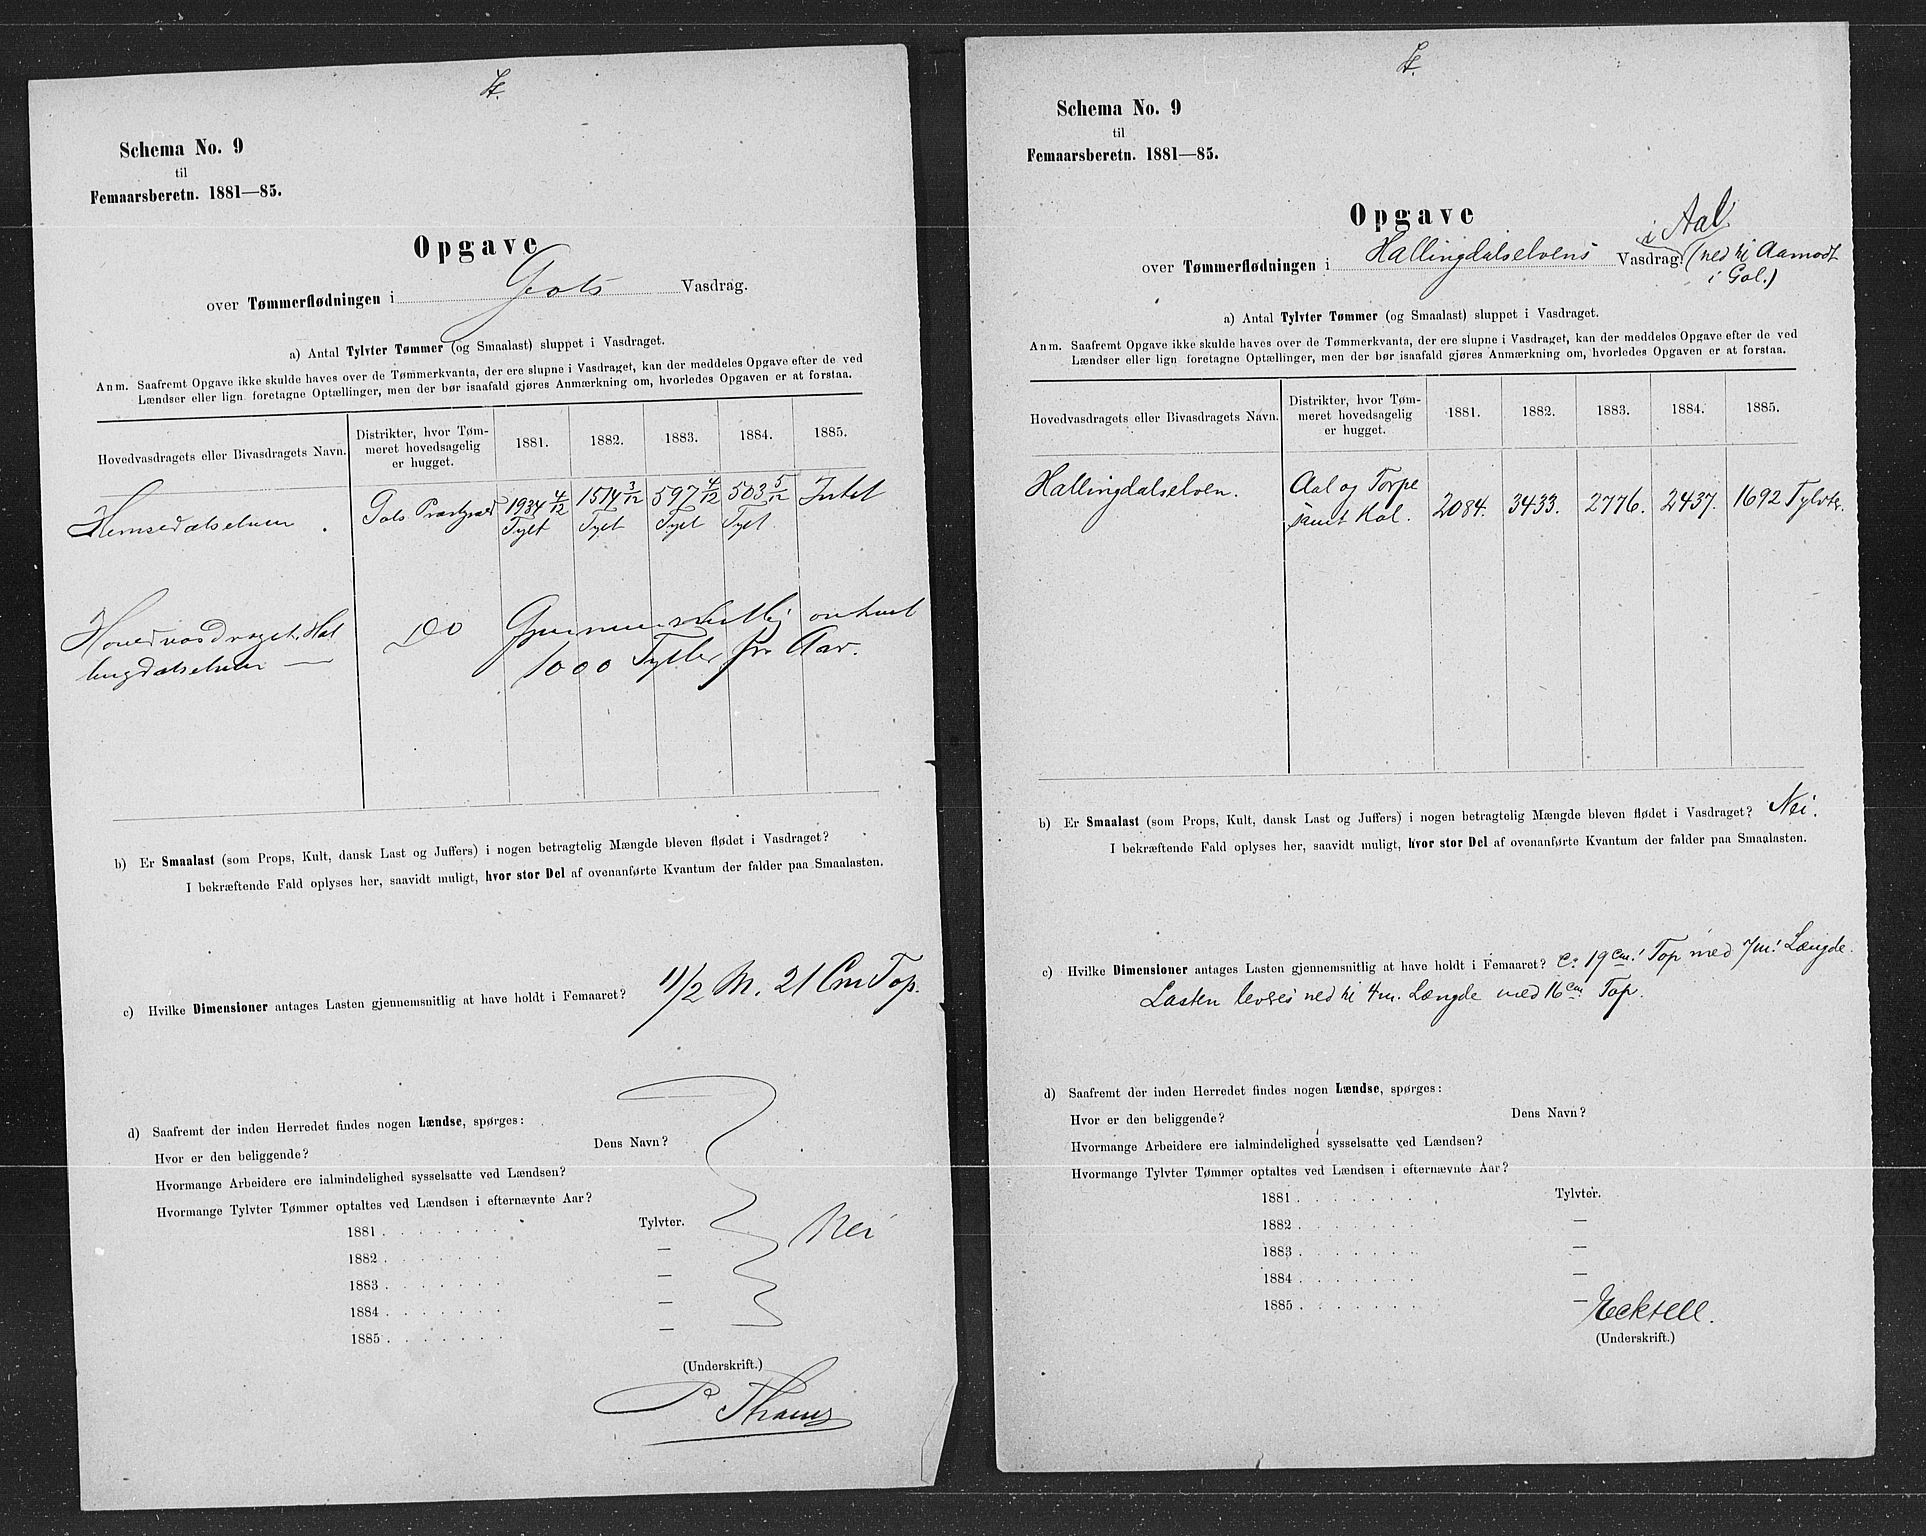 Schema No. 9
til
Femaarsberetn. 1881—85.
Opgave
over Tømmerflødningen i Gols Vasdrag.
a) Antal Tylvter Tømmer (og Smaalast) sluppet i Vasdraget.
Anm. Saafremt Opgave ikke skulde haves over de Tømmerkvanta, der ere slupne i Vasdraget, kan der meddeles Opgave efter de ved
Lændser eller lign. foretagne Optællinger, men der bør isaafald gjøres Anmærkning om, hvorledes Opgaven er at forstaa.
Hovedvasdragets eller Bivasdragets Navn. Distrikter, hvor Tøm- 1881. 1882. 1883. 1884. 1885.
meret hovedsagelig
er hugget.
Hemsedalselven. Gols Præstgjeld 1934 4/12 1514 3/12 597 4/12 503 5/12 Intet
Tylt Tylt Tylt Tylt
Hovedvasdraget Hal Do Gjennemsnitlig omtrent
lingdalselven — 1000 Tylter pr Aar.
b) Er Smaalast (som Props, Kult, dansk Last og Juffers) i nogen betragtelig Mængde bleven flødet i Vasdraget?
I bekræftende Fald oplyses her, saavidt muligt, hvor stor Del af ovenanførte Kvantum der falder paa Smaalasten.
c) Hvilke Dimensioner antages Lasten gjennemsnitlig at have holdt i Femaaret? 11/2 M. 21 Cm Top.
d) Saafremt der inden Herredet findes nogen Lændse, spørges:
Hvor er den beliggende? Dens Navn?
Hvormange Arbeidere ere ialmindelighed sysselsatte ved Lændsen?
Hvormange Tylvter Tømmer optaltes ved Lændsen i efternævnte Aar?
1881 . . . . . . . Tylvter. Nei
1882 . . . . . . . —
1883 . . . . . . . —
1884 . . . . . . . —
1885 . . . . . . . —
(Underskrift.)
P Thams
Schema No. 9
til
Femaarsberetn. 1881—85.
Opgave
i Aal
over Tømmerflødningen i Hallingdalselvens Vasdrag. (ned til Aamodt
i Gol.)
a) Antal Tylvter Tømmer (og Smaalast) sluppet i Vasdraget.
Anm. Saafremt Opgave ikke skulde haves over de Tømmerkvanta, der ere slupne i Vasdraget, kan der meddeles Opgave efter de ved
Lændser eller lign. foretagne Optællinger, men der bør isaafald gjøres Anmærkning om, hvorledes Opgaven er at forstaa.
Hovedvasdragets eller Bivasdragets Navn. Distrikter, hvor Tøm- 1881. 1882. 1883. 1884. 1885.
meret hovedsagelig
er hugget.
Hallingdalselven. Aal og Torpe
samt Hol. 2084. 3433. 2776. 2437. 1692 Tylvter.
b) Er Smaalast (som Props, Kult, dansk Last og Juffers) i nogen betragtelig Mængde bleven flødet i Vasdraget? Nei.
I bekræftende Fald oplyses her, saavidt muligt, hvor stor Del af ovenanførte Kvantum der falder paa Smaalasten.
c) Hvilke Dimensioner antages Lasten gjennemsnitlig at have holdt i Femaaret? Ca 19 Cm. Top med 7 m. Længde.
Lasten leveres ned til 4 m. Længde med 16 cm Top.
d) Saafremt der inden Herredet findes nogen Lændse, spørges:
Hvor er den beliggende? Dens Navn?
Hvormange Arbeidere ere ialmindelighed sysselsatte ved Lændsen?
Hvormange Tylvter Tømmer optaltes ved Lændsen i efternævnte Aar?
1881 . . . . . . . Tylvter.
1882 . . . . . . . —
1883 . . . . . . . —
1884 . . . . . . . —
1885 . . . . . . . —
(Underskrift.)